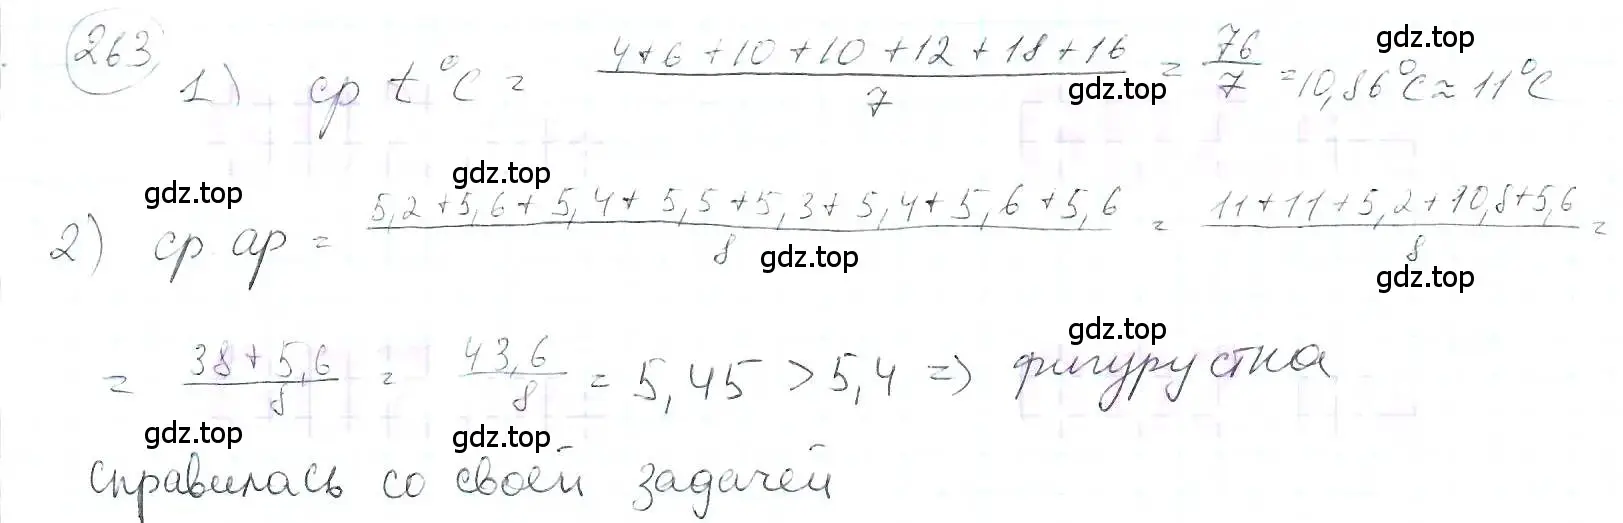 263 1) ср t°C = (4+6+10+10+12+18+16)/7 = 76/7 = 10,86°C ≈ 11°C
gdz.top
gdz.top
gdz.top
gdz.top
2) ср ар = (5,2+5,6+5,4+5,5+5,3+5,4+5,6+5,6)/8 = (11+11+5,2+10,8+5,6)/8 =
gdz.top
gdz.top
= (38+5,6)/8 = 43,6/8 = 5,45 > 5,4 => фигурустка
gdz.top
gdz.top
gdz.top
справилась со своей задачей